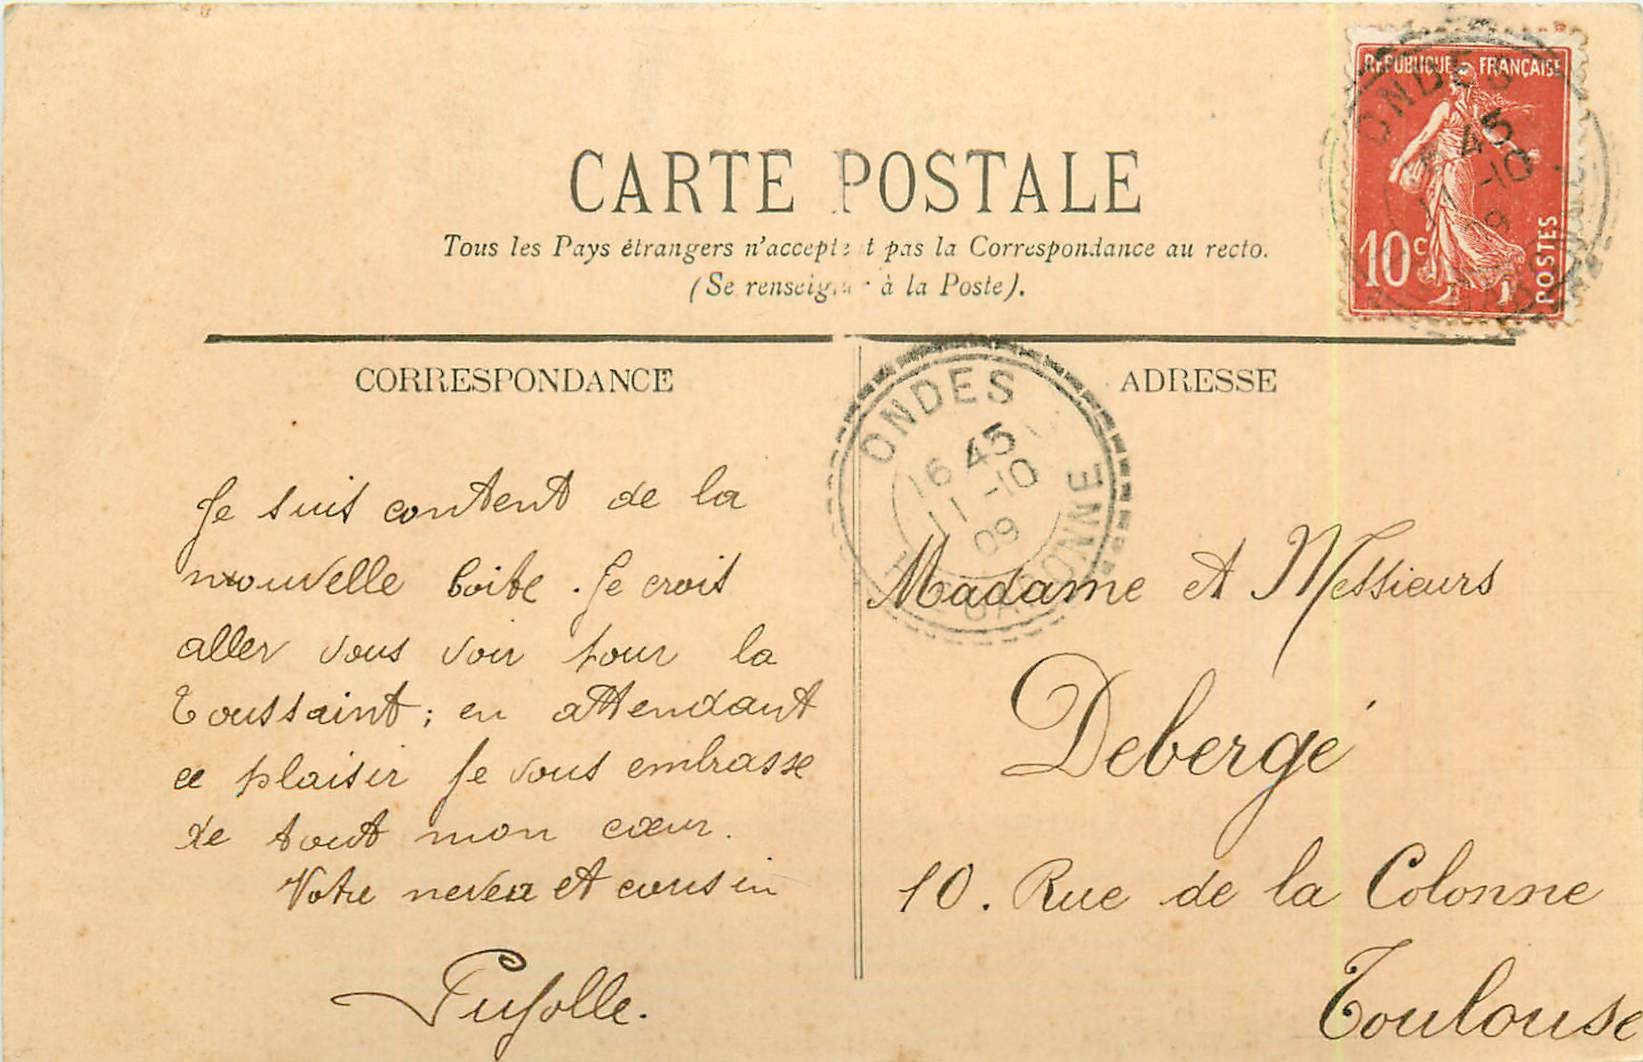 CARTE POSTALE
Tous les Pays étrangers n'acceptent pas la Correspondance au recto.
(Se renseigner à la Poste).
REPUBLIQUE FRANÇAISE
10c
POSTES
ONDES
45
-10
CORRESPONDANCE
Je suis content de la
nouvelle boite. Je crois
aller vous voir pour la
Toussaint; en attendant
ce plaisir je vous embrasse
de tout mon cœur.
Votre neveu et cousin
Pujolle.
ONDES
16 45
11 -10
09
GARONNE
ADRESSE
Madame et Messieurs
Debergé
10. Rue de la Colonne
Toulouse